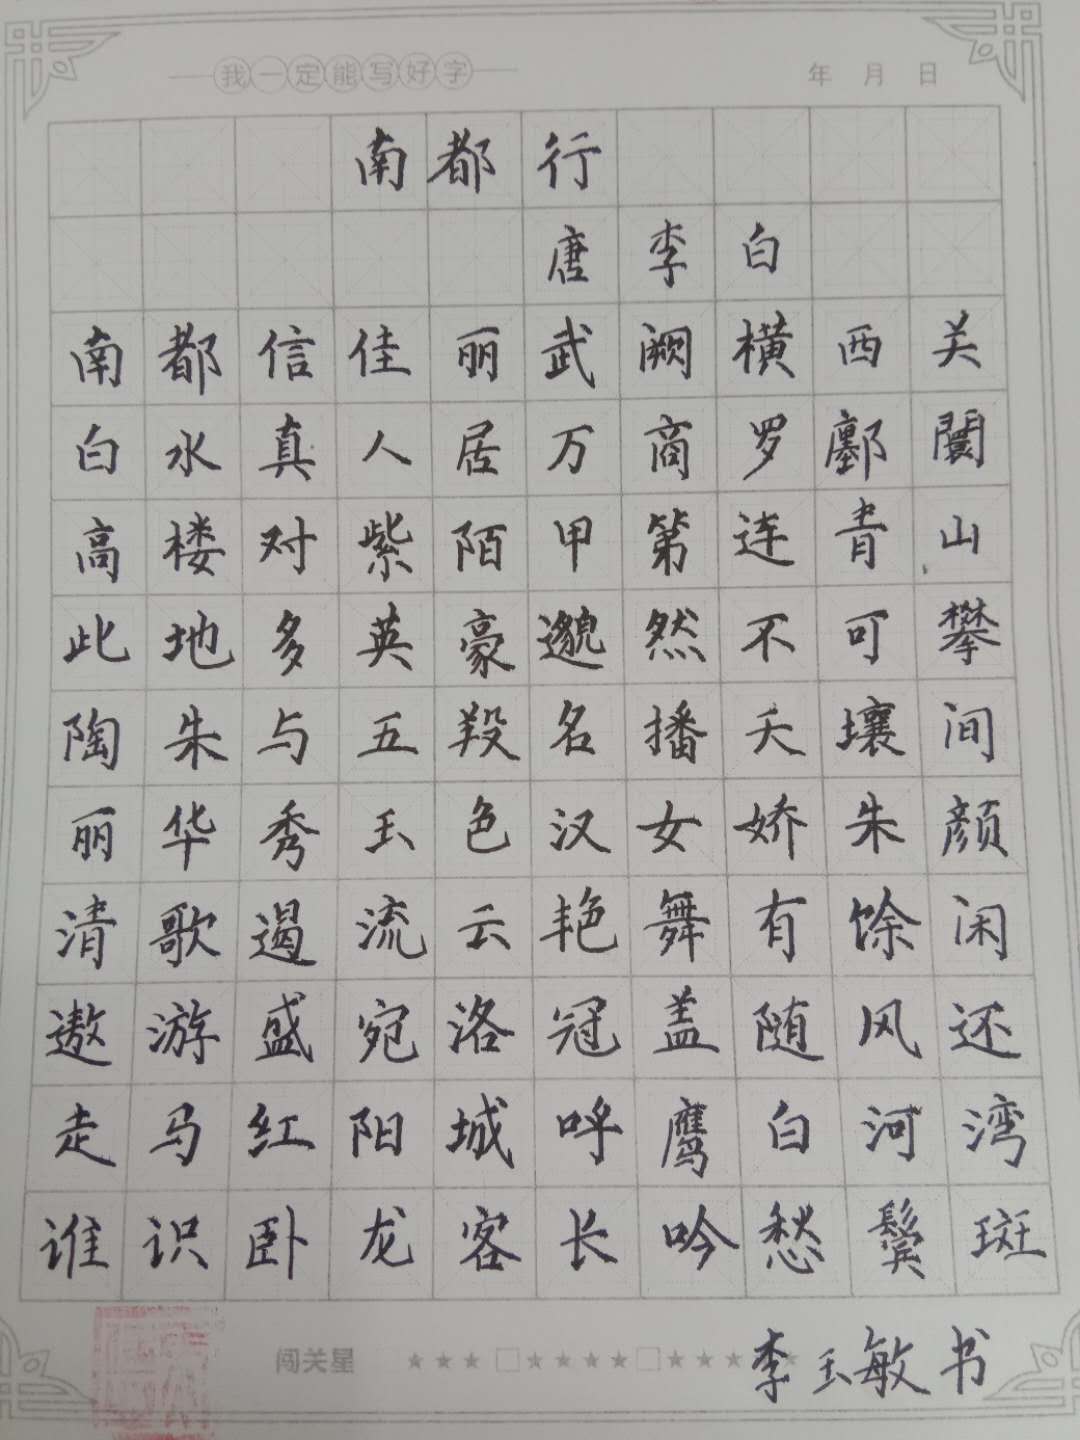 我一定能写好字
年 月 日
南都行
唐李白
南都信佳丽武阙横西关
白水真人居万商罗鄽闤
高楼对紫陌甲第连青山
此地多英豪邈然不可攀
陶朱与五羖名播天壤间
丽华秀玉色汉女娇朱颜
清歌遏流云艳舞有馀闲
遨游盛宛洛冠盖随风还
走马红阳城呼鹰白河湾
谁识卧龙客长吟愁鬓斑
闯关星
李玉敏书